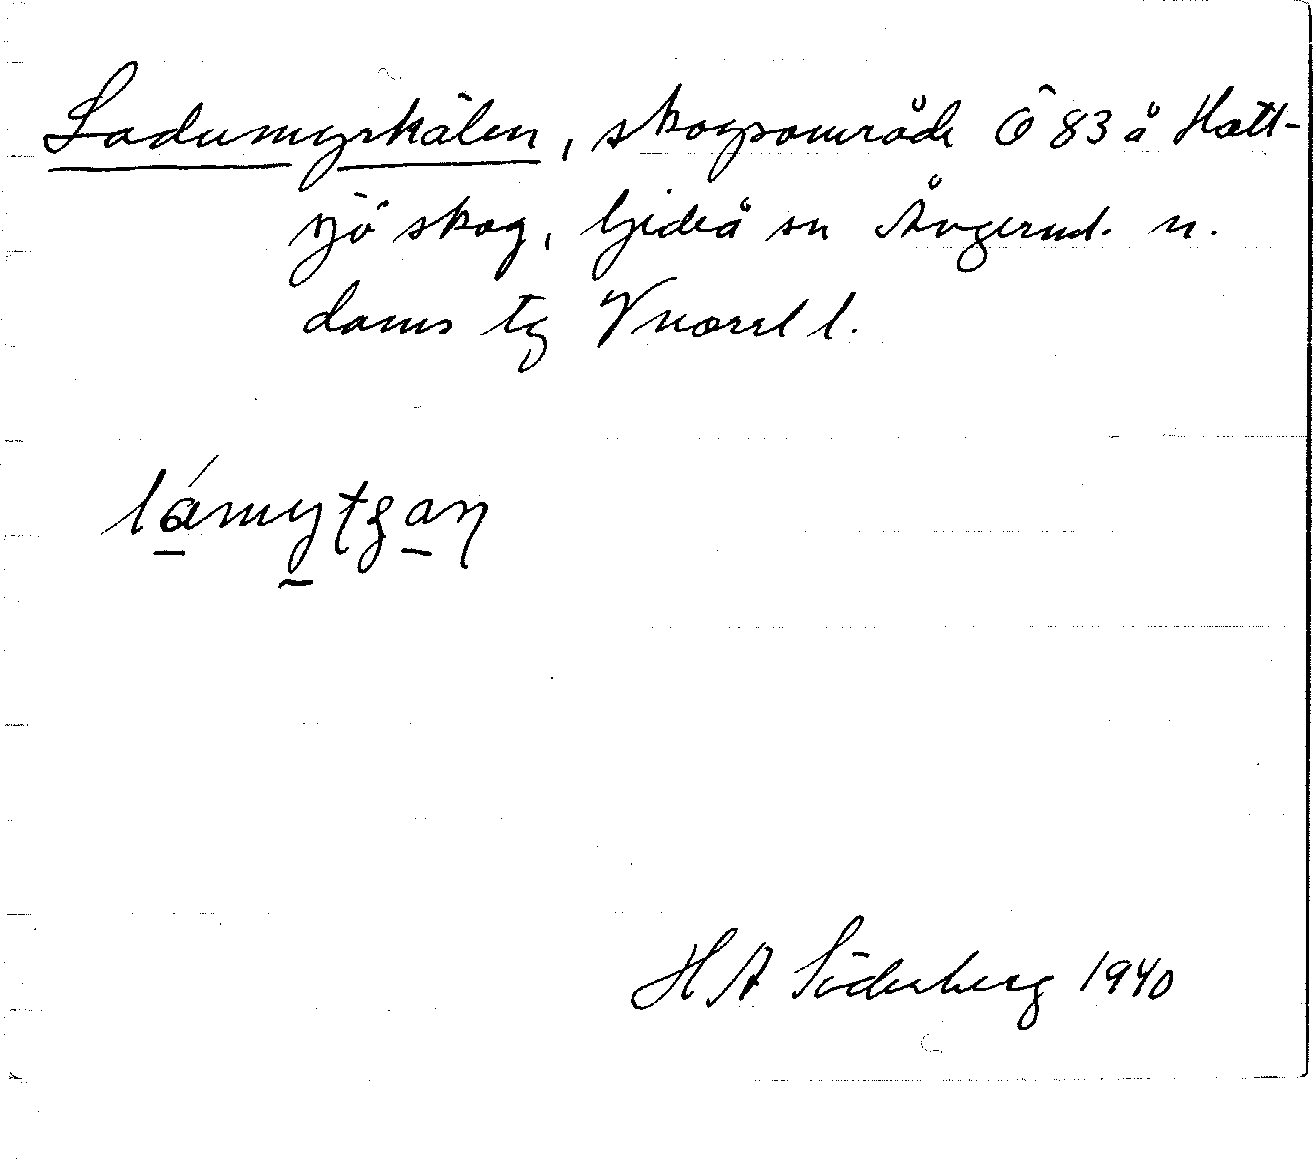 Ladumyrkälen, skogsområde Ö 83 å Hätt-
sjö skog, Gideå sn Ångerml. n.
doms tg V norrl l.
lámytʒan
H A Söderberg 1940